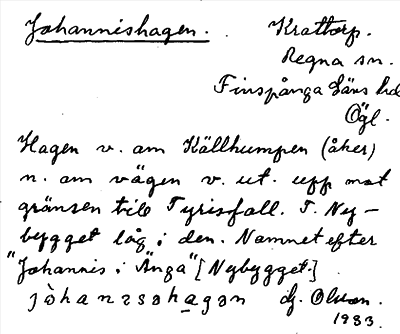 Johannishagen. Krattorp.
Regna sn.
Finspånga läns hd
Ögl.
Hagen v. om Källhumpen (åker)
n. om vägen v. ut. upp mot
gränsen till Tyrisfall. T. Ny-
bygget låg i den. Namnet efter
"Johannis i Änga" [Nybygget.]
G. Olson.
1933.